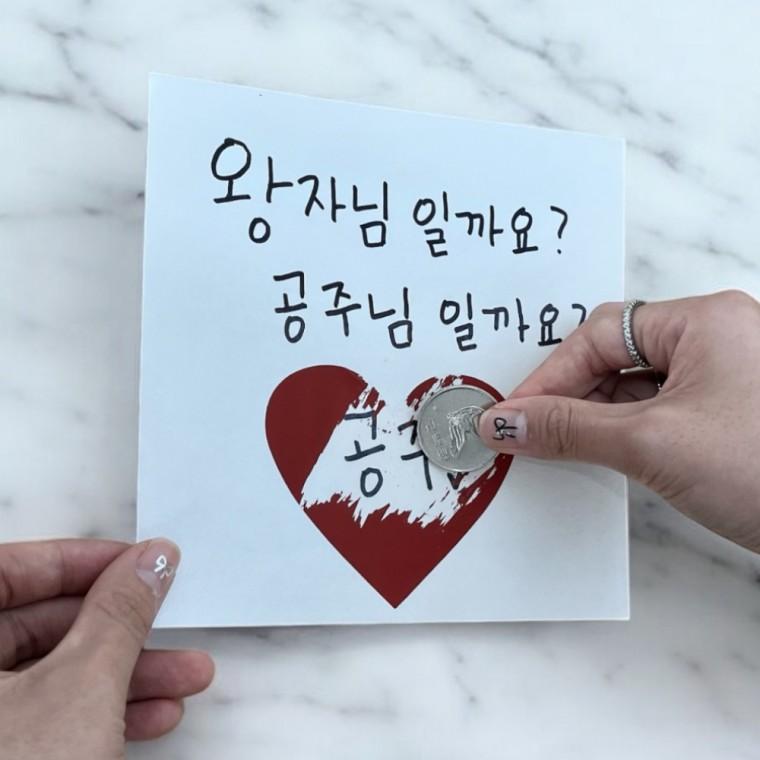 왕자님 일까요?
공주님 일까요?
공주